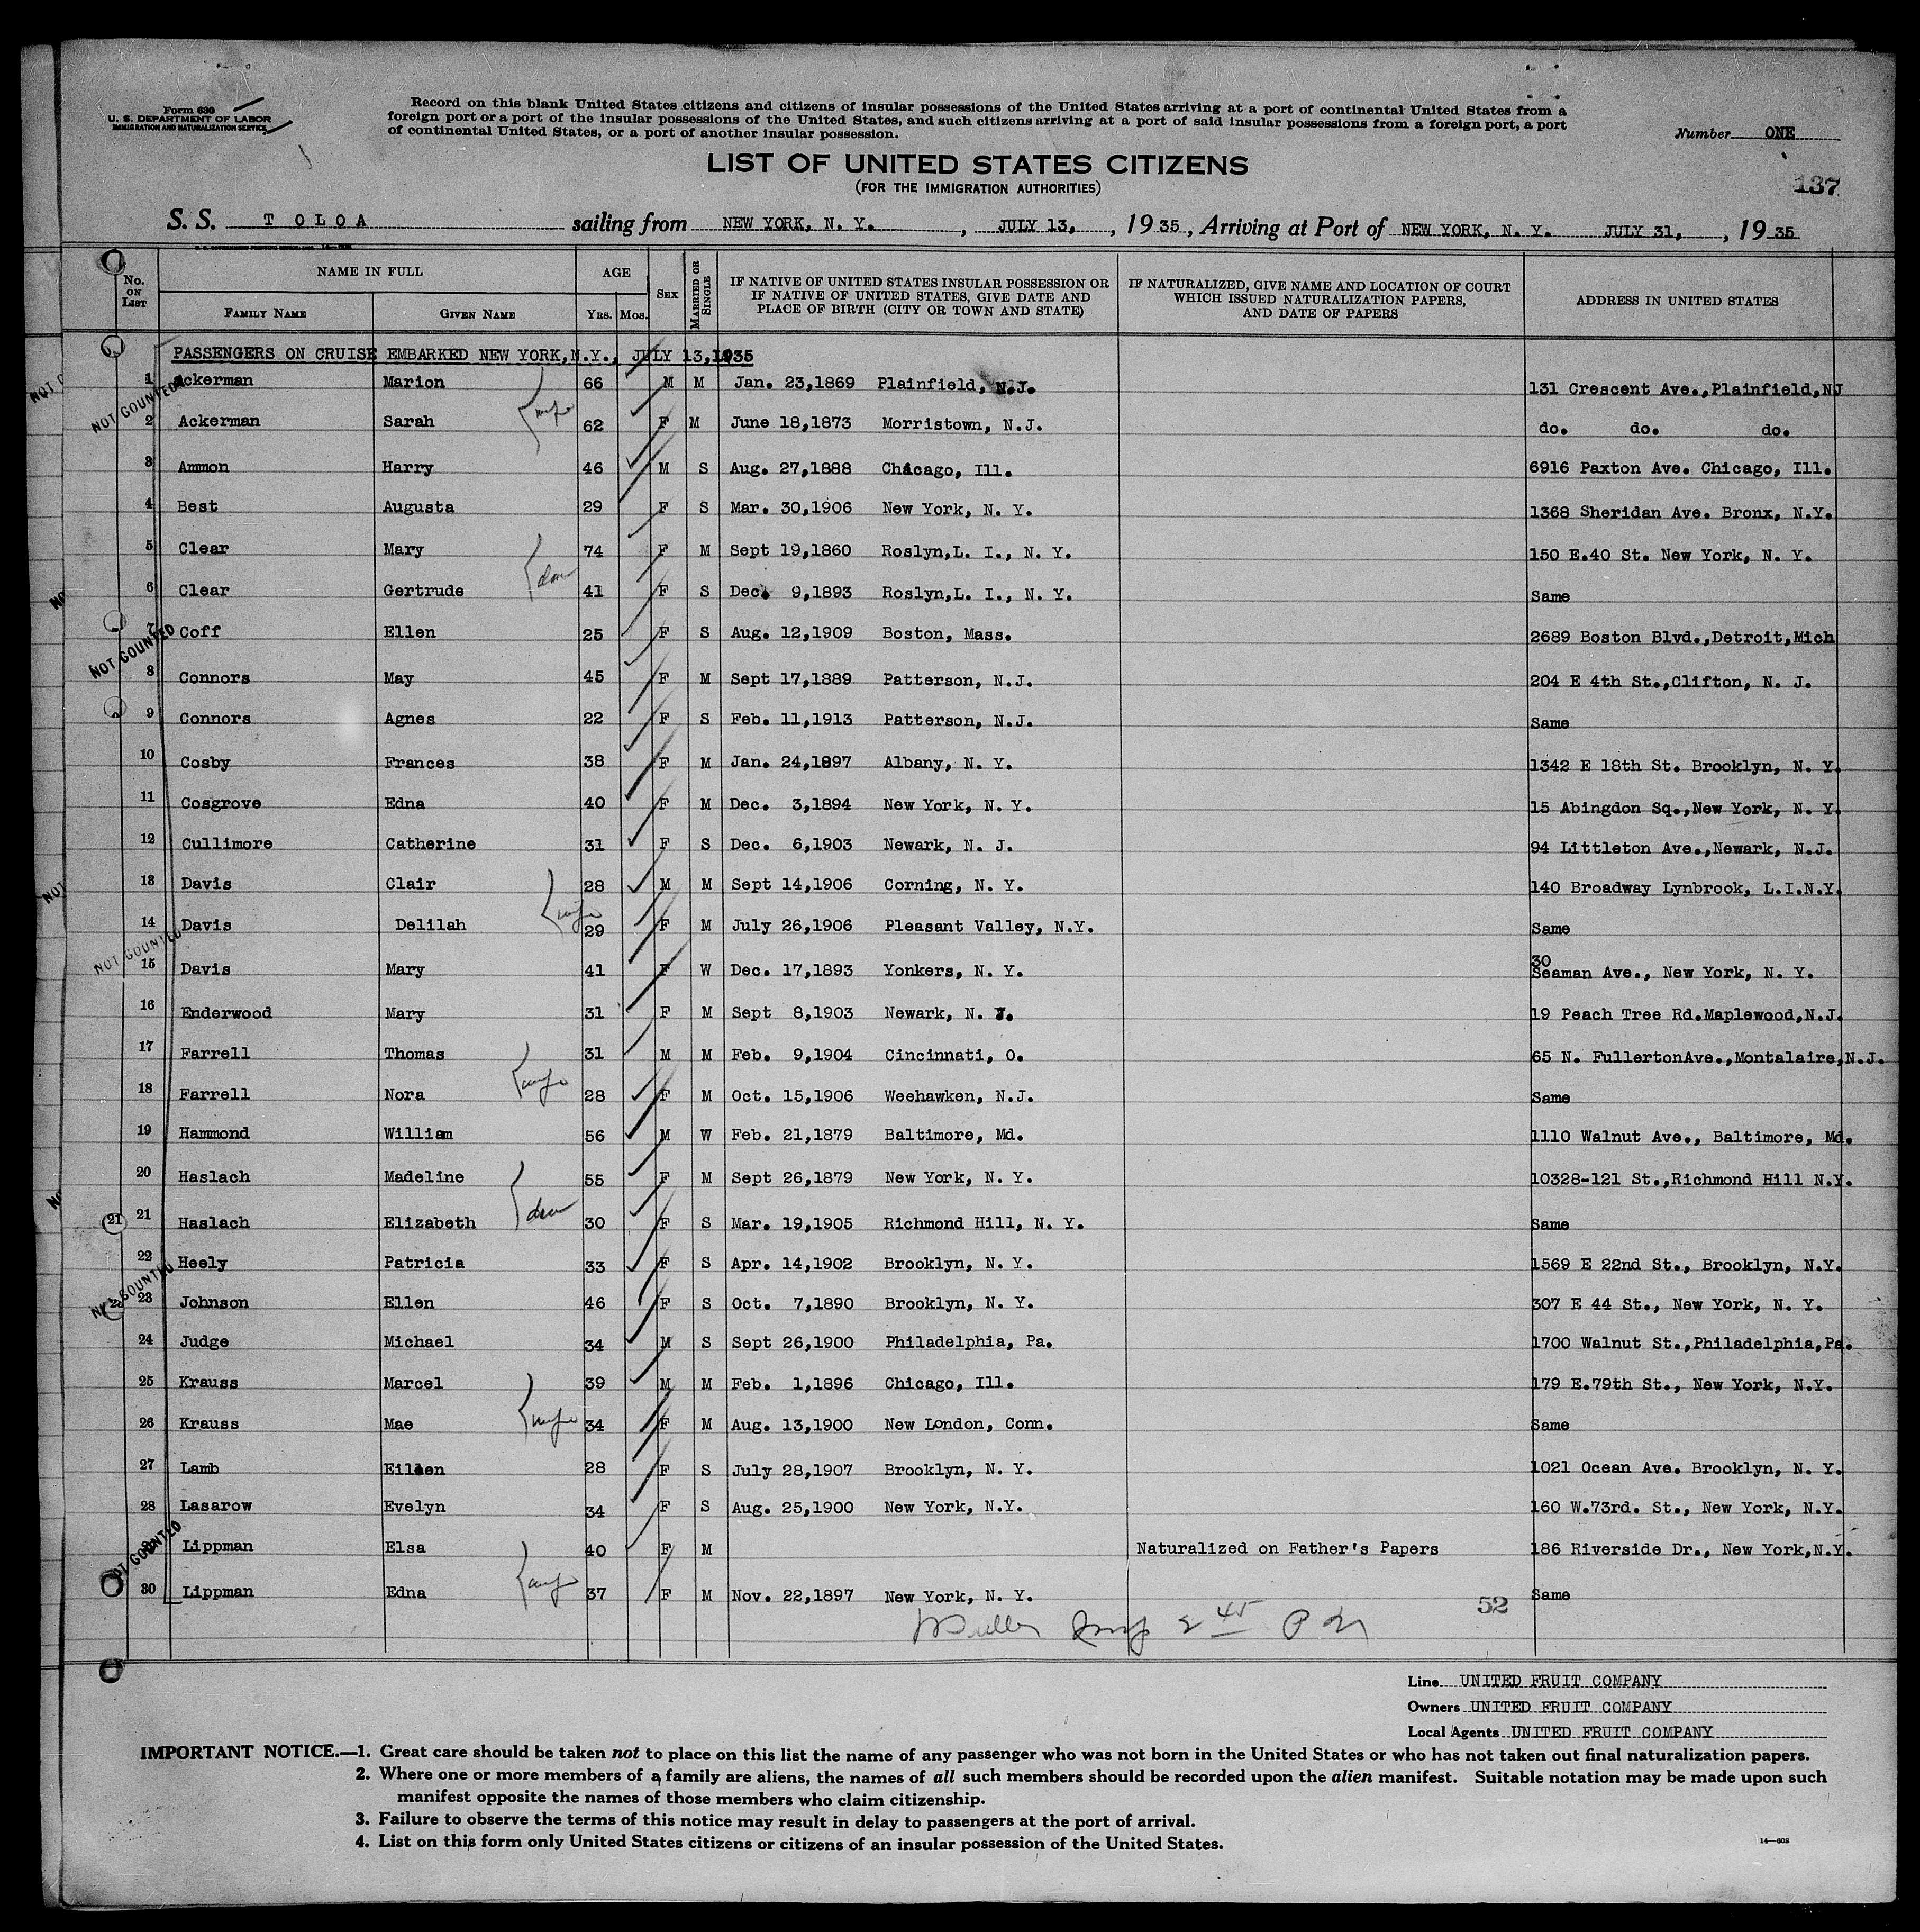 Form 630
U. S. DEPARTMENT OF LABOR
IMMIGRATION AND NATURALIZATION SERVICE
Record on this blank United States citizens and citizens of insular possessions of the United States arriving at a port of continental United States from a
foreign port or a port of the insular possessions of the United States, and such citizens arriving at a port of said insular possessions from a foreign port, a port
of continental United States, or a port of another insular possession.
Number ONE
LIST OF UNITED STATES CITIZENS
(FOR THE IMMIGRATION AUTHORITIES)
137
S. S. T O L O A sailing from NEW YORK, N. Y. , JULY 13, , 19 35 , Arriving at Port of NEW YORK, N. Y. JULY 31, , 19 35
No. ON LIST NAME IN FULL FAMILY NAME GIVEN NAME AGE YRS. MOS. SEX MARRIED OR SINGLE IF NATIVE OF UNITED STATES INSULAR POSSESSION OR IF NATIVE OF UNITED STATES, GIVE DATE AND PLACE OF BIRTH (CITY OR TOWN AND STATE) IF NATURALIZED, GIVE NAME AND LOCATION OF COURT WHICH ISSUED NATURALIZATION PAPERS, AND DATE OF PAPERS ADDRESS IN UNITED STATES
PASSENGERS ON CRUISE EMBARKED NEW YORK,N.Y., JULY 13,1935
1 Ackerman Marion 66 M M Jan. 23,1869 Plainfield, N.J. 131 Crescent Ave.,Plainfield,NJ
NOT COUNTED
wife
2 Ackerman Sarah 62 F M June 18,1873 Morristown, N.J. do. do. do.
3 Ammon Harry 46 M S Aug. 27,1888 Chicago, Ill. 6916 Paxton Ave. Chicago, Ill.
4 Best Augusta 29 F S Mar. 30,1906 New York, N. Y. 1368 Sheridan Ave. Bronx, N.Y.
5 Clear Mary 74 F M Sept 19,1860 Roslyn,L. I., N. Y. 150 E.40 St. New York, N. Y.
6 Clear Gertrude 41 F S Dec. 9,1893 Roslyn,L. I., N. Y. Same
7 Coff Ellen 25 F S Aug. 12,1909 Boston, Mass. 2689 Boston Blvd.,Detroit,Mich
NOT COUNTED
8 Connors May 45 F M Sept 17,1889 Patterson, N.J. 204 E 4th St.,Clifton, N. J.
9 Connors Agnes 22 F S Feb. 11,1913 Patterson, N.J. Same
10 Cosby Frances 38 F M Jan. 24,1897 Albany, N. Y. 1342 E 18th St. Brooklyn, N. Y.
11 Cosgrove Edna 40 F M Dec. 3,1894 New York, N. Y. 15 Abingdon Sq.,New York, N. Y.
12 Cullimore Catherine 31 F S Dec. 6,1903 Newark, N. J. 94 Littleton Ave.,Newark, N.J.
13 Davis Clair 28 M M Sept 14,1906 Corning, N. Y. 140 Broadway Lynbrook, L.I.N.Y.
wife
14 Davis Delilah 29 F M July 26,1906 Pleasant Valley, N.Y. Same
NOT COUNTED
15 Davis Mary 41 F W Dec. 17,1893 Yonkers, N. Y. 30 Seaman Ave., New York, N. Y.
16 Enderwood Mary 31 F M Sept 8,1903 Newark, N. J. 19 Peach Tree Rd.Maplewood,N.J.
17 Farrell Thomas 31 M M Feb. 9,1904 Cincinnati, O. 65 N. FullertonAve.,Montalaire,N.J.
wife
18 Farrell Nora 28 F M Oct. 15,1906 Weehawken, N.J. Same
19 Hammond William 56 M W Feb. 21,1879 Baltimore, Md. 1110 Walnut Ave., Baltimore, Md.
20 Haslach Madeline 55 F M Sept 26,1879 New York, N. Y. 10328-121 St.,Richmond Hill N.Y.
21 21 Haslach Elizabeth 30 F S Mar. 19,1905 Richmond Hill, N. Y. Same
22 Heely Patricia 33 F S Apr. 14,1902 Brooklyn, N. Y. 1569 E 22nd St., Brooklyn, N.Y.
NOT COUNTED
23 Johnson Ellen 46 F S Oct. 7,1890 Brooklyn, N. Y. 307 E 44 St., New York, N. Y.
24 Judge Michael 34 M S Sept 26,1900 Philadelphia, Pa. 1700 Walnut St.,Philadelphia,Pa.
25 Krauss Marcel 39 M M Feb. 1,1896 Chicago, Ill. 179 E.79th St., New York, N.Y.
wife
26 Krauss Mae 34 F M Aug. 13,1900 New London, Conn. Same
27 Lamb Eileen 28 F S July 28,1907 Brooklyn, N. Y. 1021 Ocean Ave. Brooklyn, N. Y.
28 Lasarow Evelyn 34 F S Aug. 25,1900 New York, N.Y. 160 W.73rd. St., New York, N.Y.
NOT COUNTED
Lippman Elsa 40 F M Naturalized on Father's Papers 186 Riverside Dr., New York,N.Y.
wife
30 Lippman Edna 37 F M Nov. 22,1897 New York, N. Y. Same
52
Line UNITED FRUIT COMPANY
Owners UNITED FRUIT COMPANY
Local Agents UNITED FRUIT COMPANY
IMPORTANT NOTICE.—1. Great care should be taken not to place on this list the name of any passenger who was not born in the United States or who has not taken out final naturalization papers.
2. Where one or more members of a family are aliens, the names of all such members should be recorded upon the alien manifest. Suitable notation may be made upon such
manifest opposite the names of those members who claim citizenship.
3. Failure to observe the terms of this notice may result in delay to passengers at the port of arrival.
4. List on this form only United States citizens or citizens of an insular possession of the United States.
14—608